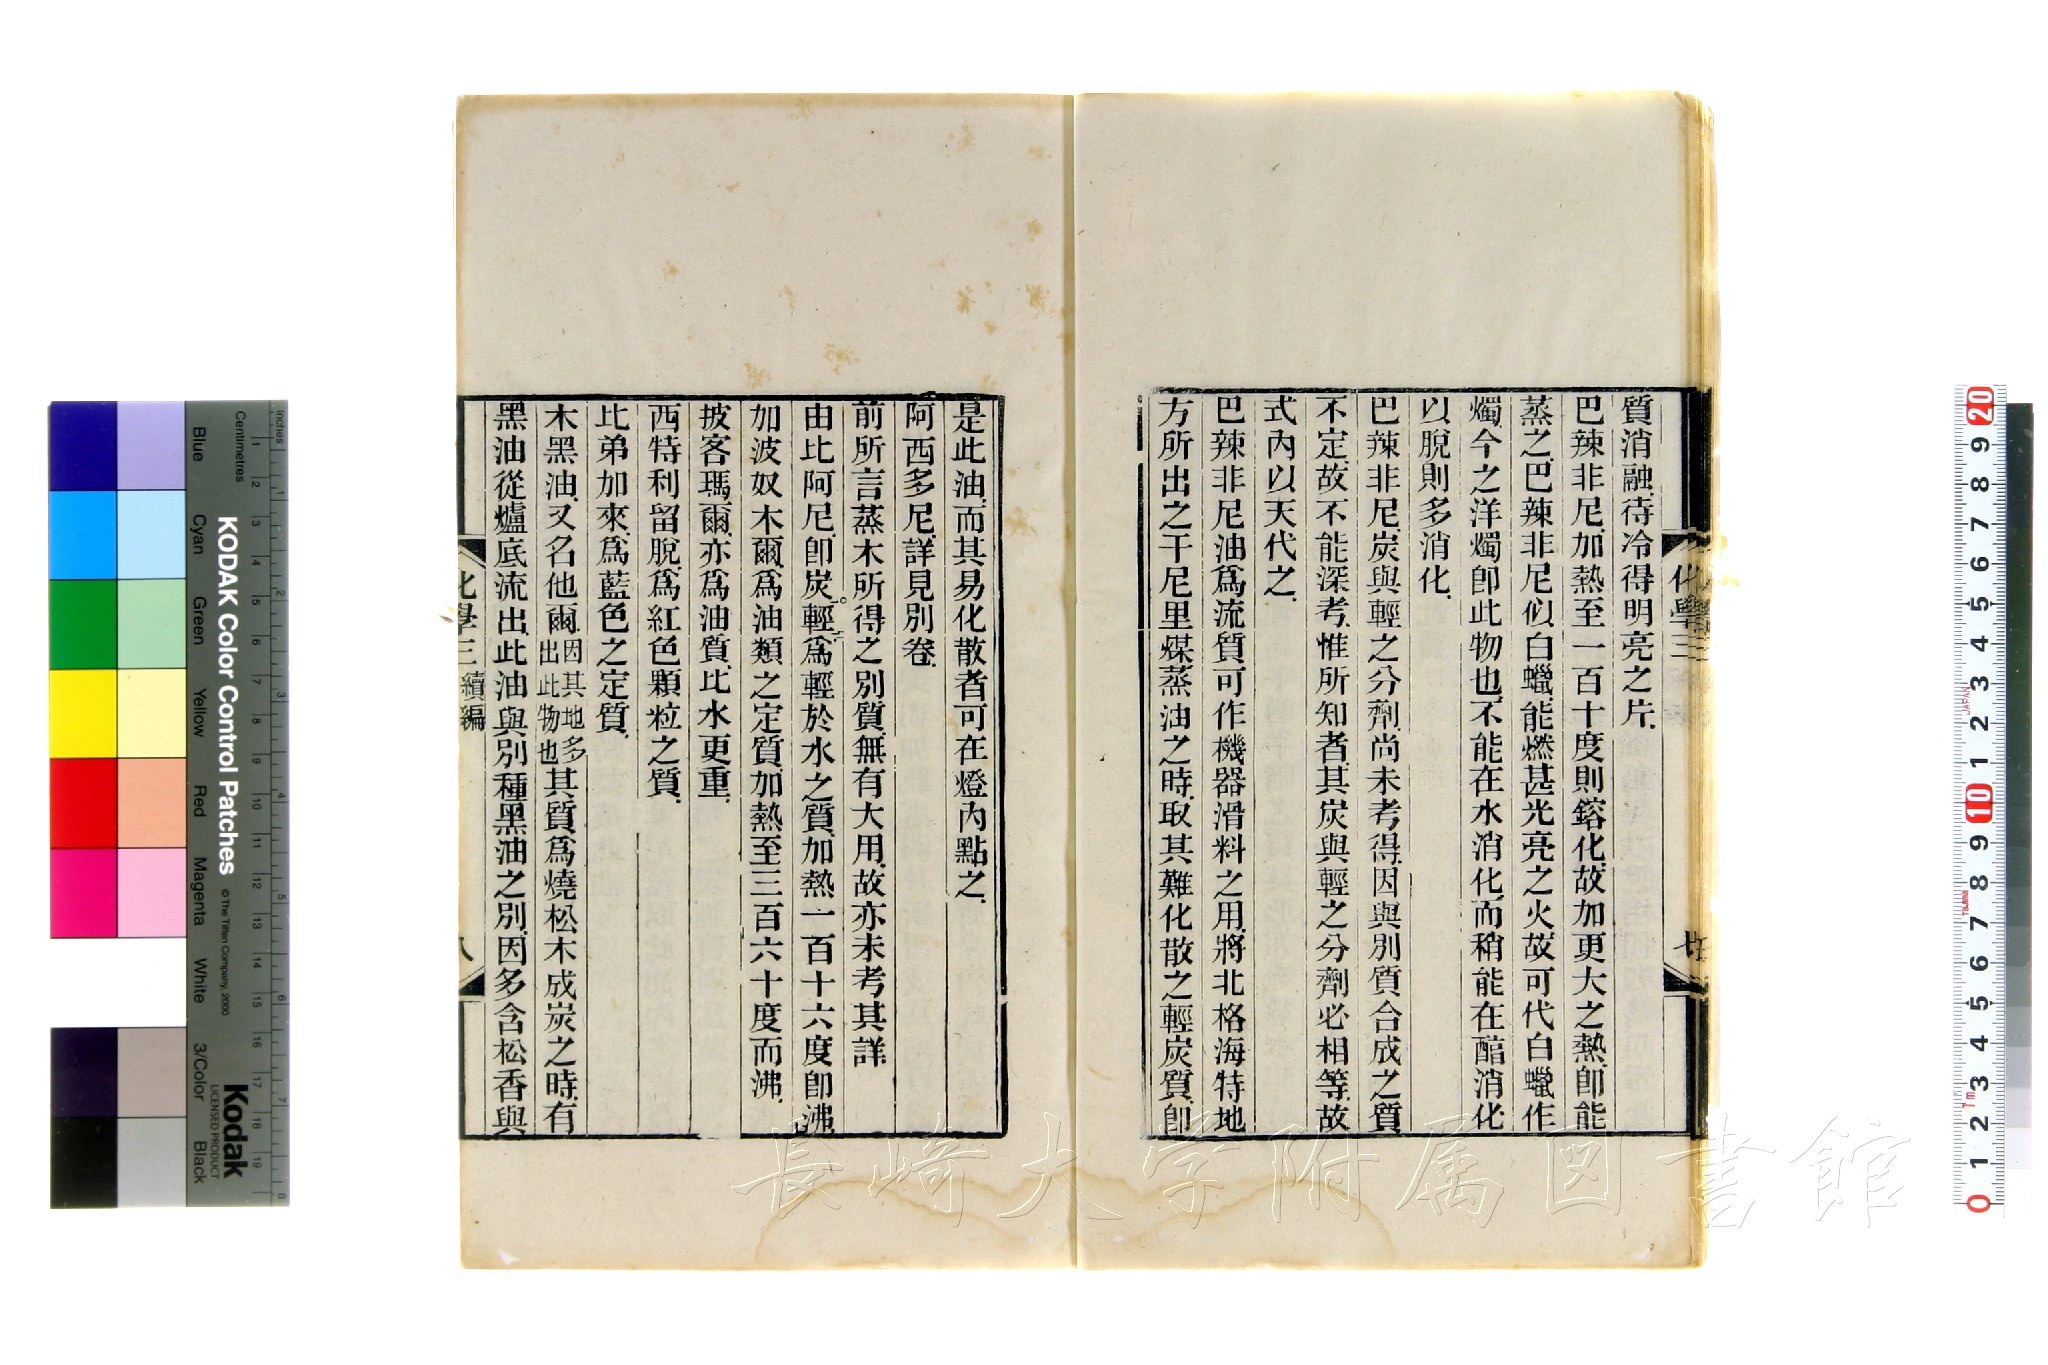 質消融、待冷得明亮之片、
巴辣非尼、加熱至一百十度則鎔化、故加更大之熱、卽能
蒸之、巴辣非尼似白蠟、能燃甚光亮之火、故可代白蠟作
燭、今之洋燭卽此物也、不能在水消化、而稍能在醕消化、
以脫則多消化、
巴辣非尼、炭與輕之分劑、尚未考得、因與別質合成之質
不定、故不能深考、惟所知者、其炭與輕之分劑必相等、故
式內以天代之、
巴辣非尼油爲流質、可作機器滑料之用、將北格海特地
方所出之干尼里煤蒸油之時、取其難化散之輕炭質、卽
化學三
七
是此油、而其易化散者可在燈內點之、
阿西多尼、詳見別卷、
前所言蒸木所得之別質、無有大用、故亦未考其詳
由比阿尼、卽炭輕、爲輕於水之質、加熱一百十六度卽沸、
加波奴木爾、爲油類之定質、加熱至三百六十度而沸、
披客瑪爾、亦爲油質、比水更重、
西特利留脫、爲紅色顆粒之質、
比弟加來、爲藍色之定質、
木黑油、又名他爾、因其地多出此物也其質爲燒松木成炭之時、有
黑油從爐底流出、此油與別種黑油之別、因多含松香與
化學三 續編
八
inches
Centimetres
KODAK Color Control Patches
© The Tiffen Company, 2000
Kodak
LICENSED PRODUCT
Blue Cyan Green Yellow Red Magenta White 3/Color Black
長崎大学附属図書館
20 9 8 7 6 5 4 3 2 1 10 9 8 7 6 5 4 3 2 1 0
JAPAN
Tajima
1m